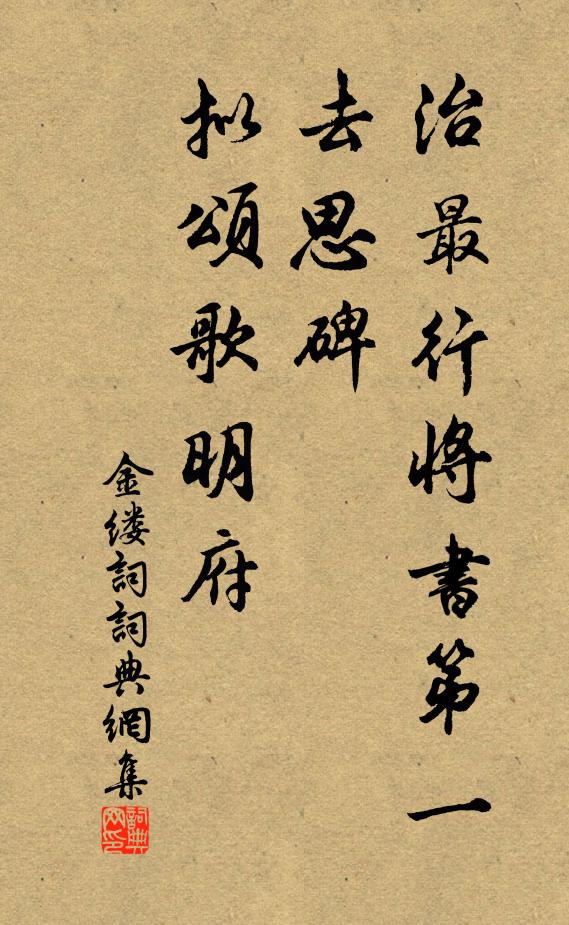 治最行将書第一
去思碑
拟頌歌明府
金缕詞詞典網集
詞典网印